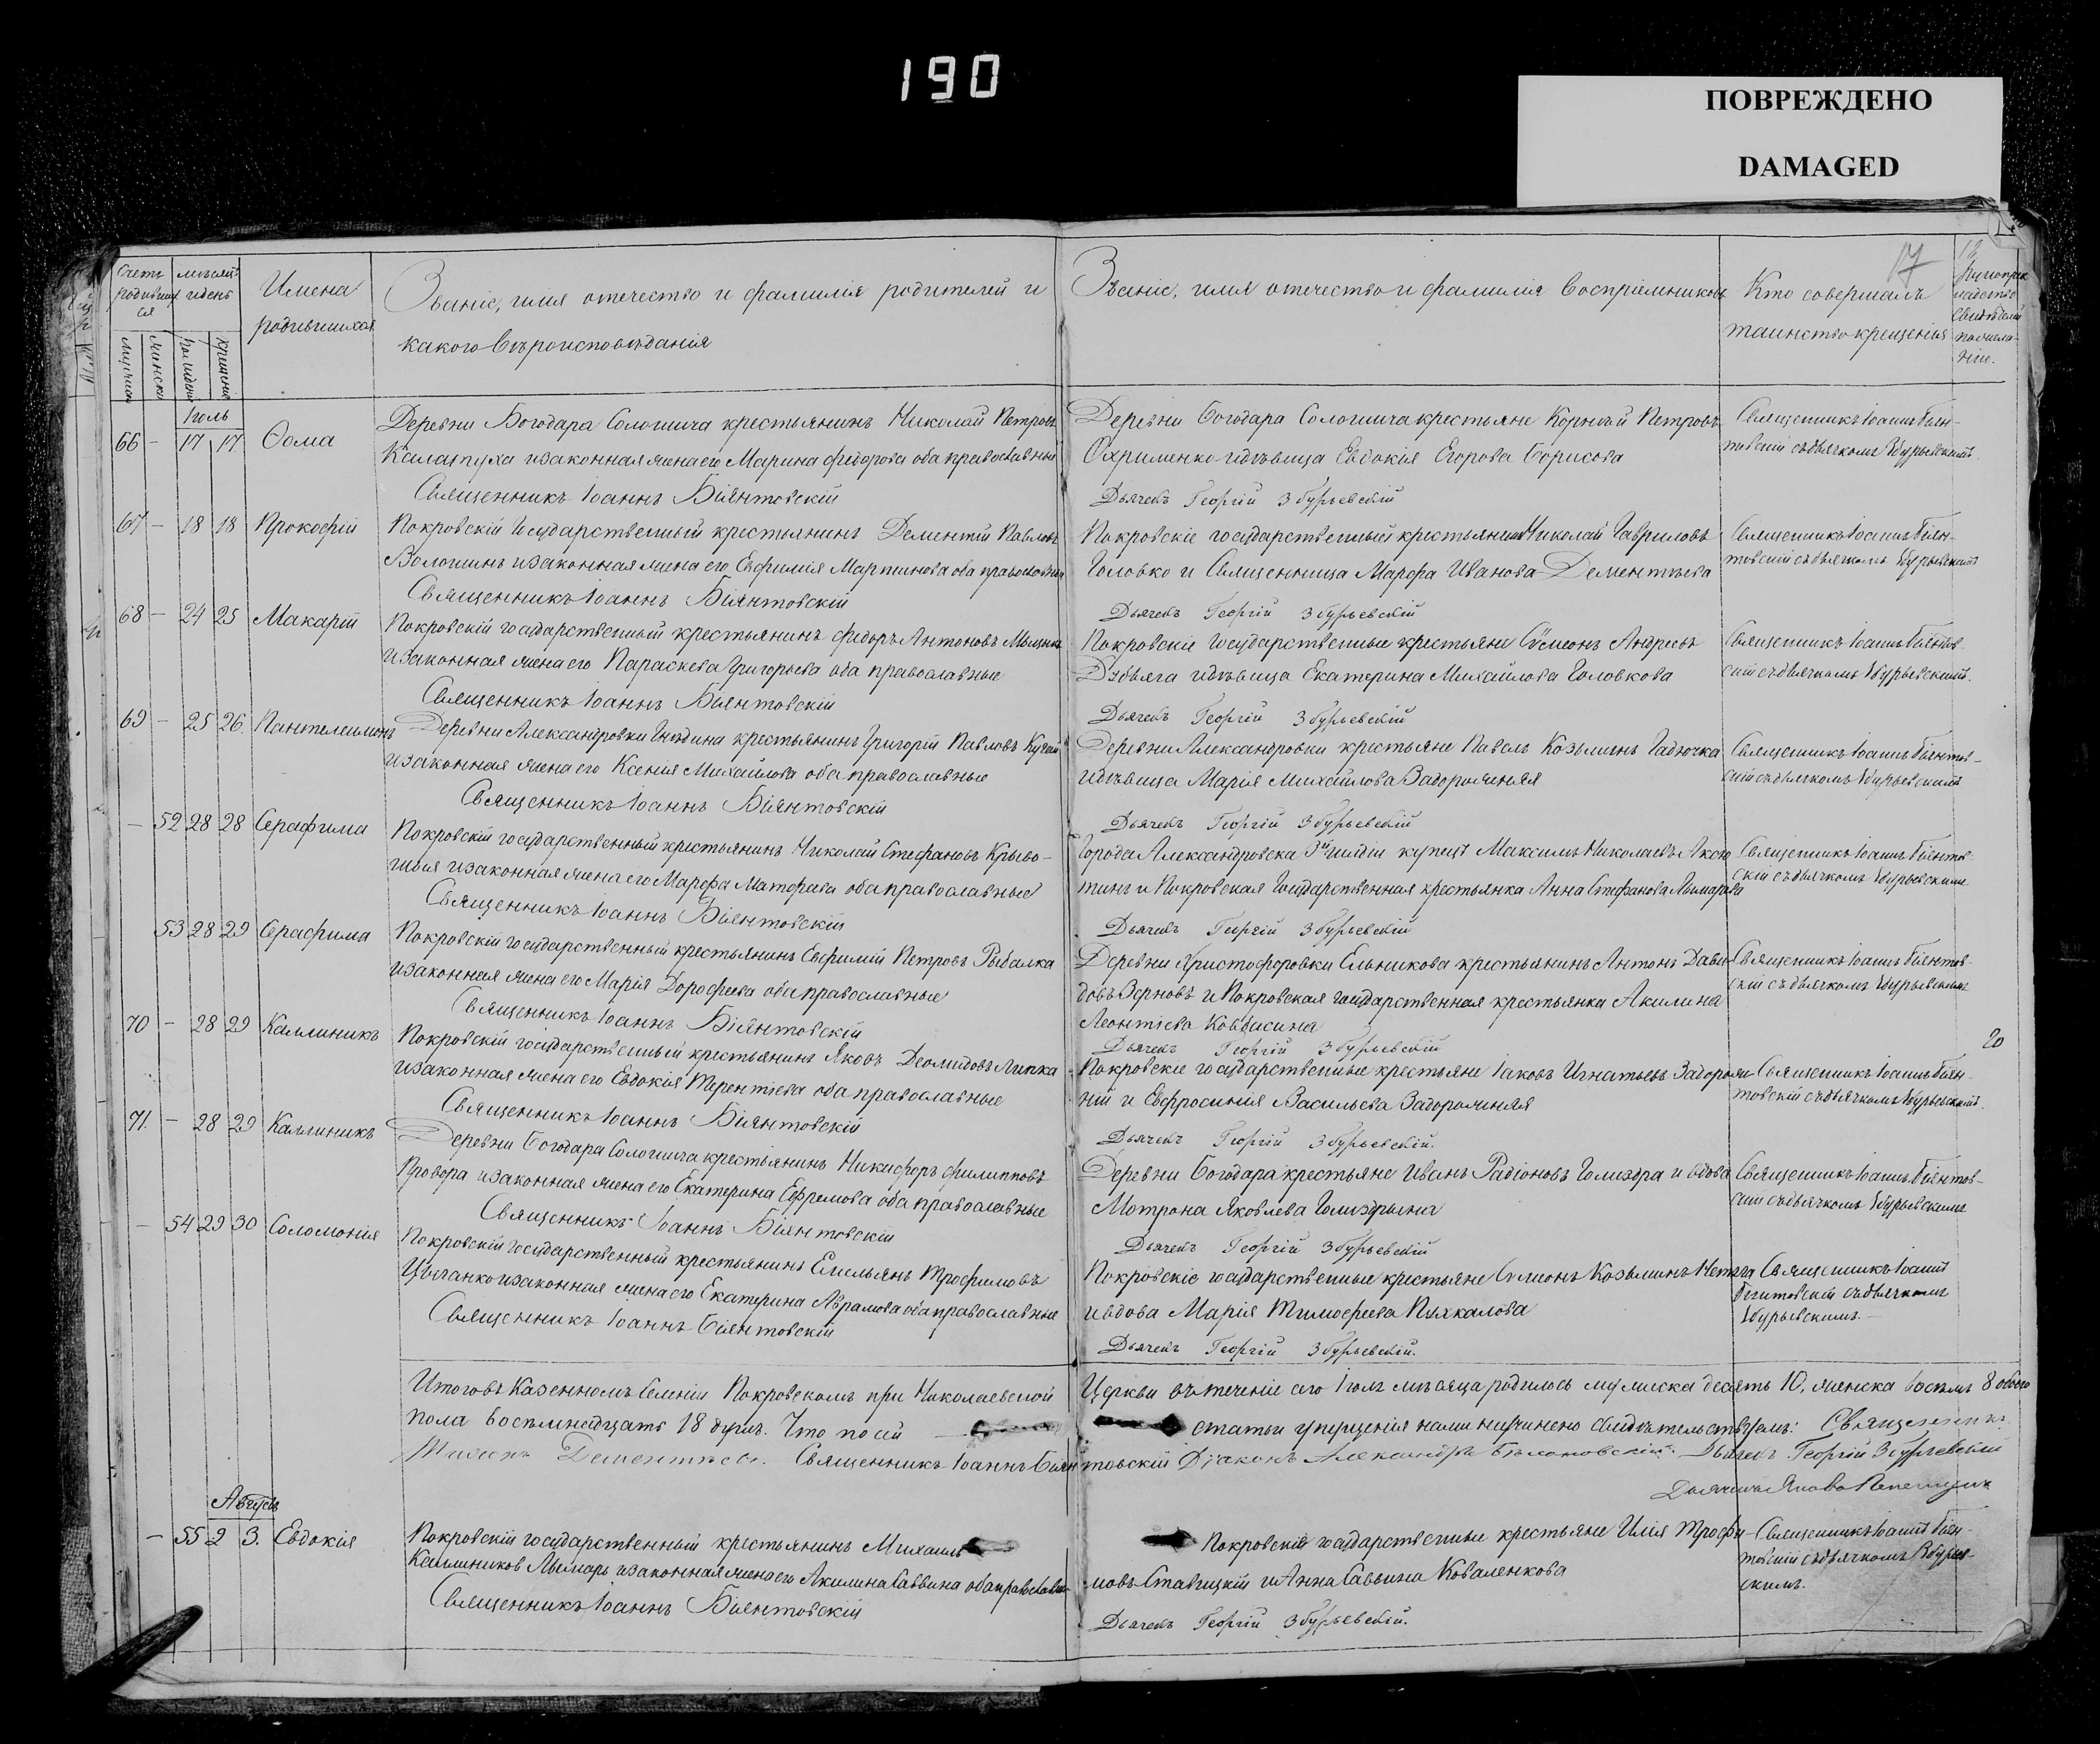 190
ПОВРЕЖДЕНО
DAMAGED
17
Счетъ родившихся
мѣсяцъ и день
Имена родившихся
Званіе, имя отечество и фамилія родителей и
какого вѣроисповѣданія
Званіе, имя отечество и фамилія воспріемниковъ
Кто совершалъ
таинство крещенія
мужеска
женска
рожденія
крещенія
Іюль
66 - 17 17 Ѳома
Деревни Богодара Сологшича крестьянинъ Николай Петровъ
Калапуха и законная жена его Марина Федорова оба православные
Священникъ Іоаннъ Біянтовскій
Деревни Богодара Сологшича крестьяне Корнѣй Петровъ
Охрименко и дѣвица Евдокія Егорова Борисова
Дьячекъ Георгій Збурьевскій
Священникъ Іоаннъ Біян-
товскій съ дьячкомъ Збурьевскимъ.
67 - 18 18 Прокофій
Покровскій государственный крестьянинъ Дементій Павловъ
Волошинъ и законная жена его Евфимія Мартинова оба православные
Священникъ Іоаннъ Біянтовскій
Покровскіе государственный крестьянинъ Николай Гавриловъ
Головко и Священница Марфа Иванова Дементьева
Дьячекъ Георгій Збурьевскій
Священникъ Іоаннъ Біян-
товскій съ дьячкомъ Збурьевскимъ
68 - 24 25 Макарій
Покровскій государственный крестьянинъ Федоръ Антоновъ
и законная жена его Параскева Григорьева оба православные
Священникъ Іоаннъ Біянтовскій
Покровскіе государственные крестьяне Сѵмеонъ Андреевъ
Дубьяга и дѣвица Екатерина Михайлова Головкова
Дьячекъ Георгій Збурьевскій
Священникъ Іоаннъ Біянтов-
скій съ дьячкомъ Збурьевскимъ.
69 - 25 26 Пантелеимонъ
Деревни Александровки Гнѣдина крестьянинъ Григорій Павловъ
и законная жена его Ксенія Михайлова оба православные
Священникъ Іоаннъ Біянтовскій
Деревни Александровки крестьяне Павелъ Козьминъ Гадючка
и дѣвица Марія Михайлова Задорожняя
Дьячекъ Георгій Збурьевскій
Священникъ Іоаннъ Біянтов-
скій съ дьячкомъ Збурьевскимъ
- 52 28 28 Серафима
Покровскій государственный крестьянинъ Николай Стефановъ Криво-
шія и законная жена его Марфа Матфеева оба православные
Священникъ Іоаннъ Біянтовскій
Города Александровска 3й гильдіи купецъ Максимъ Николаевъ Аксю
тинъ и Покровская государственная крестьянка Анна Стефанова Лымарова
Дьячекъ Георгій Збурьевскій
Священникъ Іоаннъ Біянтов-
скій съ дьячкомъ Збурьевскимъ
53 28 29 Серафима
Покровскій государственный крестьянинъ Евфимій Петровъ Рыбалка
и законная жена его Марія Дорофеева оба православные
Священникъ Іоаннъ Біянтовскій
Деревни Христофоровки Ельникова крестьянинъ Антонъ Дави-
довъ Зерновъ и Покровская государственная крестьянка Акилина
Леонтіева Ковбасина
Дьячекъ Георгій Збурьевскій
Священникъ Іоаннъ Біянтов-
скій съ дьячкомъ Збурьевскимъ
70 - 28 29 Каллиникъ
Покровскій государственный крестьянинъ Яковъ Деомидовъ Липка
и законная жена его Евдокія Терентіева оба православные
Священникъ Іоаннъ Біянтовскій
Покровскіе государственные крестьяне Іаковъ Игнатьевъ Задорож-
ній и Евфросинія Васильева Задорожняя
Дьячекъ Георгій Збурьевскій.
Священникъ Іоаннъ Біян-
товскій съ дьячкомъ Збурьевскимъ.
20
71 - 28 29 Каллиникъ
Деревни Богодара Сологшича крестьянинъ Никифоръ Филипповъ
Провора и законная жена его Екатерина Ефремова оба православные
Священникъ Іоаннъ Біянтовскій
Деревни Богодара крестьяне Иванъ Радіоновъ Голиздра и вдова
Мотрона Яковлева Голиздрына
Дьячекъ Георгій Збурьевскій
Священникъ Іоаннъ Біянтов-
скій съ дьячкомъ Збурьевскимъ
- 54 29 30 Соломонія
Покровскій государственный крестьянинъ Емельянъ Трофимовъ
Цыганко и законная жена его Екатерина Аврамова оба православные
Священникъ Іоаннъ Біянтовскій
Покровскіе государственные крестьяне Сѵмеонъ Козьминъ Нетяга
и вдова Марія Тимофеева Пухкалова
Дьячекъ Георгій Збурьевскій.
Священникъ Іоаннъ
Біянтовскій съ дьячкомъ
Збурьевскимъ.
Итого въ Казенномъ селеніи Покровскомъ при Николаевской Церкви въ теченіе сего Іюля мѣсяца родилось мужеска десять 10, женска восемь 8 обоего
пола восемнадцать 18 душъ. Что по сей статьи упущенія нами неучинено свидѣтельствуемъ: Священникъ
Дементьевъ. Священникъ Іоаннъ Біянтовскій Діаконъ Александръ Дьячекъ Георгій Збурьевскій
Августъ
- 55 2 3. Евдокія
Покровскій государственный крестьянинъ Михаилъ
Каллиниковъ Лымарь и законная жена его Акилина Саввина оба православные
Священникъ Іоаннъ Біянтовскій
Покровскіе государственные крестьяне Илія Трофи-
мовъ Ставицкій и Анна Саввина Коваленкова
Дьячекъ Георгій Збурьевскій.
Священникъ Іоаннъ Біян-
товскій съ дьячкомъ Збурьев-
скимъ.